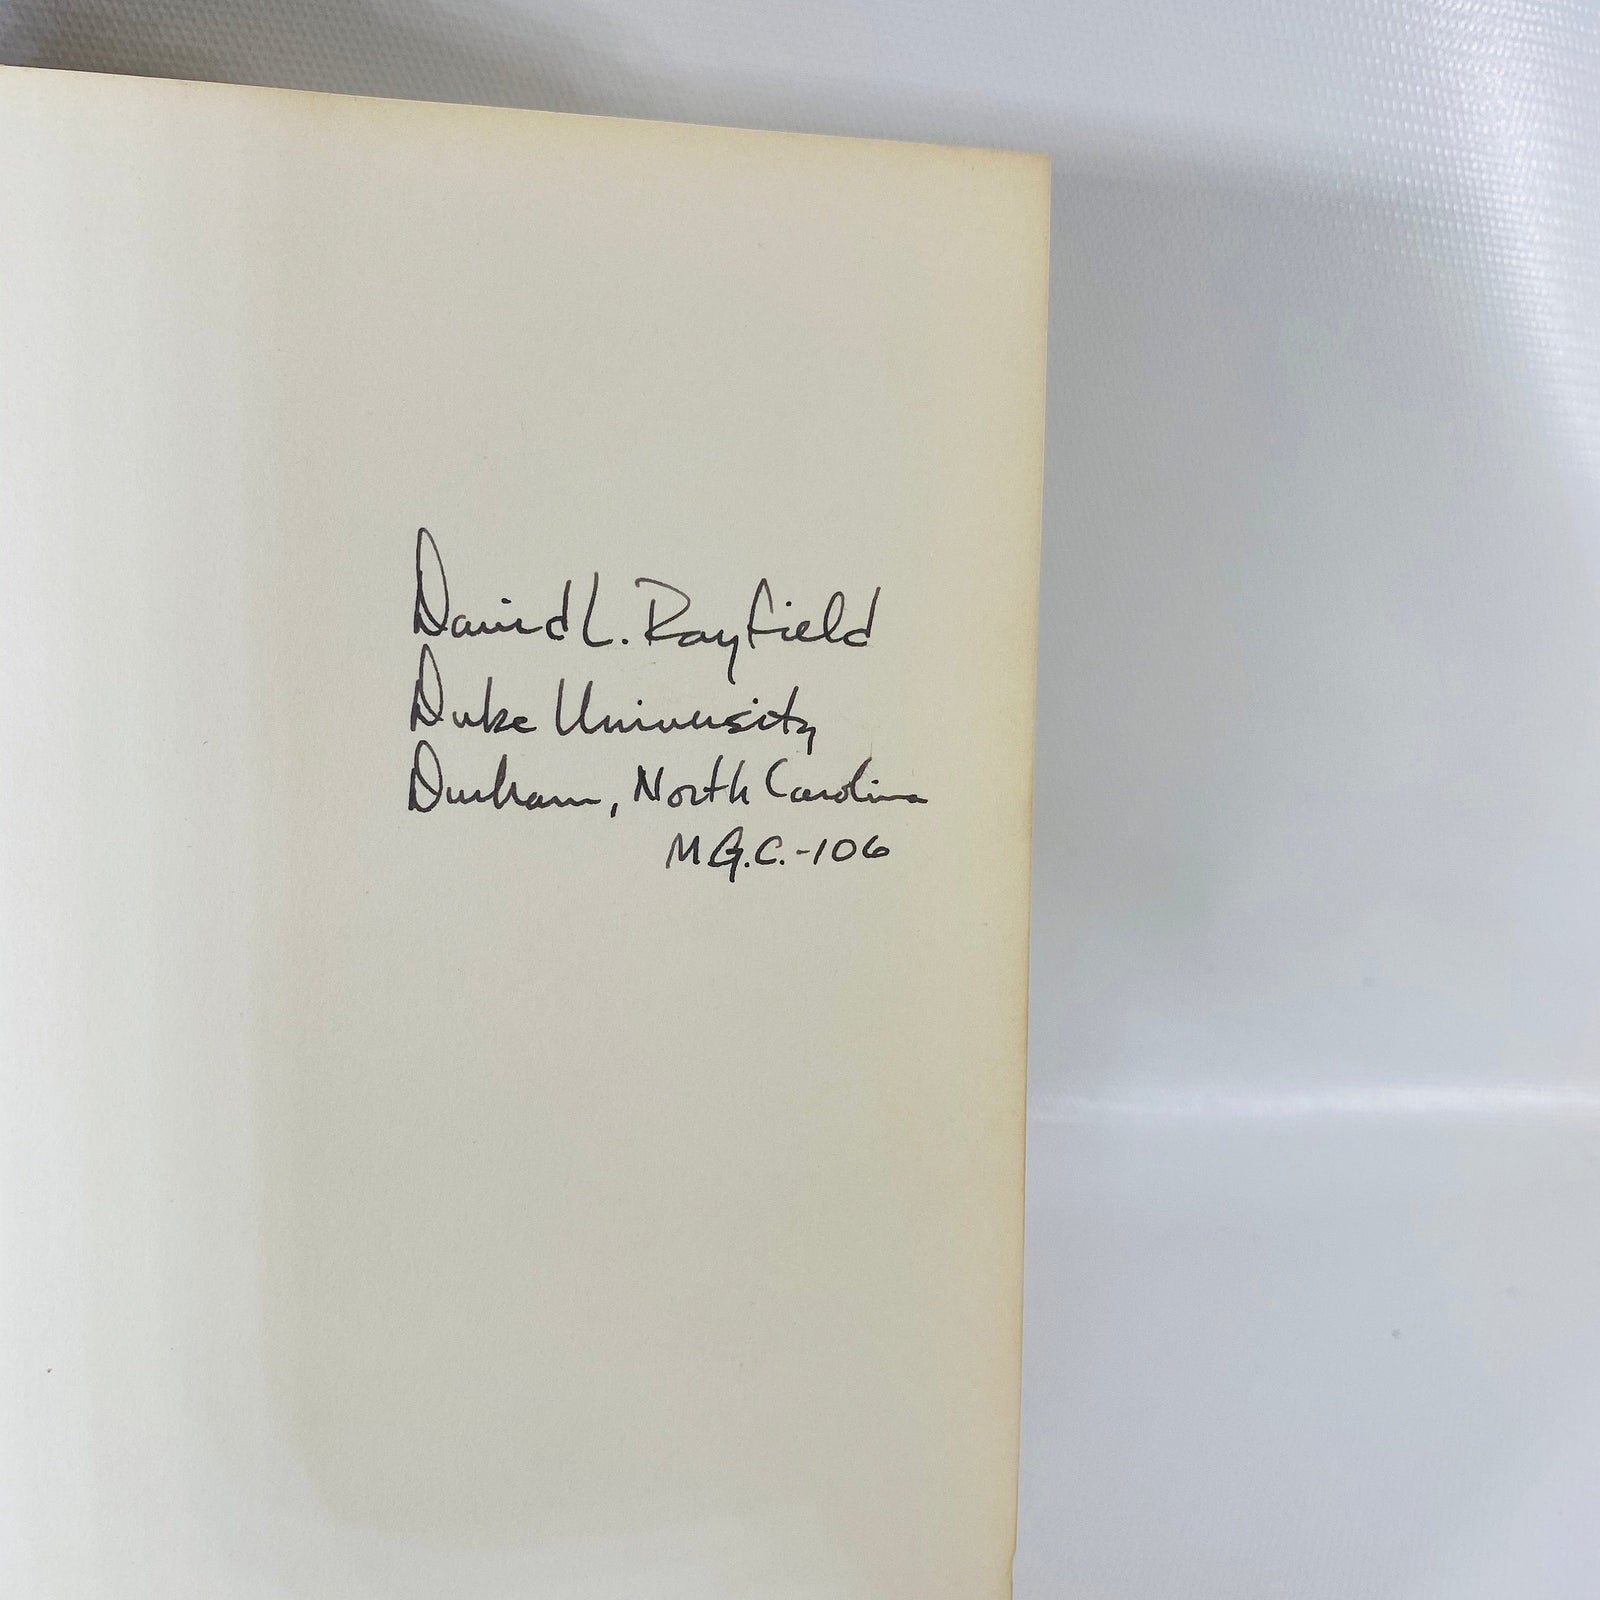 David L. Rayfield
Duke University
Durham, North Carolina
M.G.C.-106